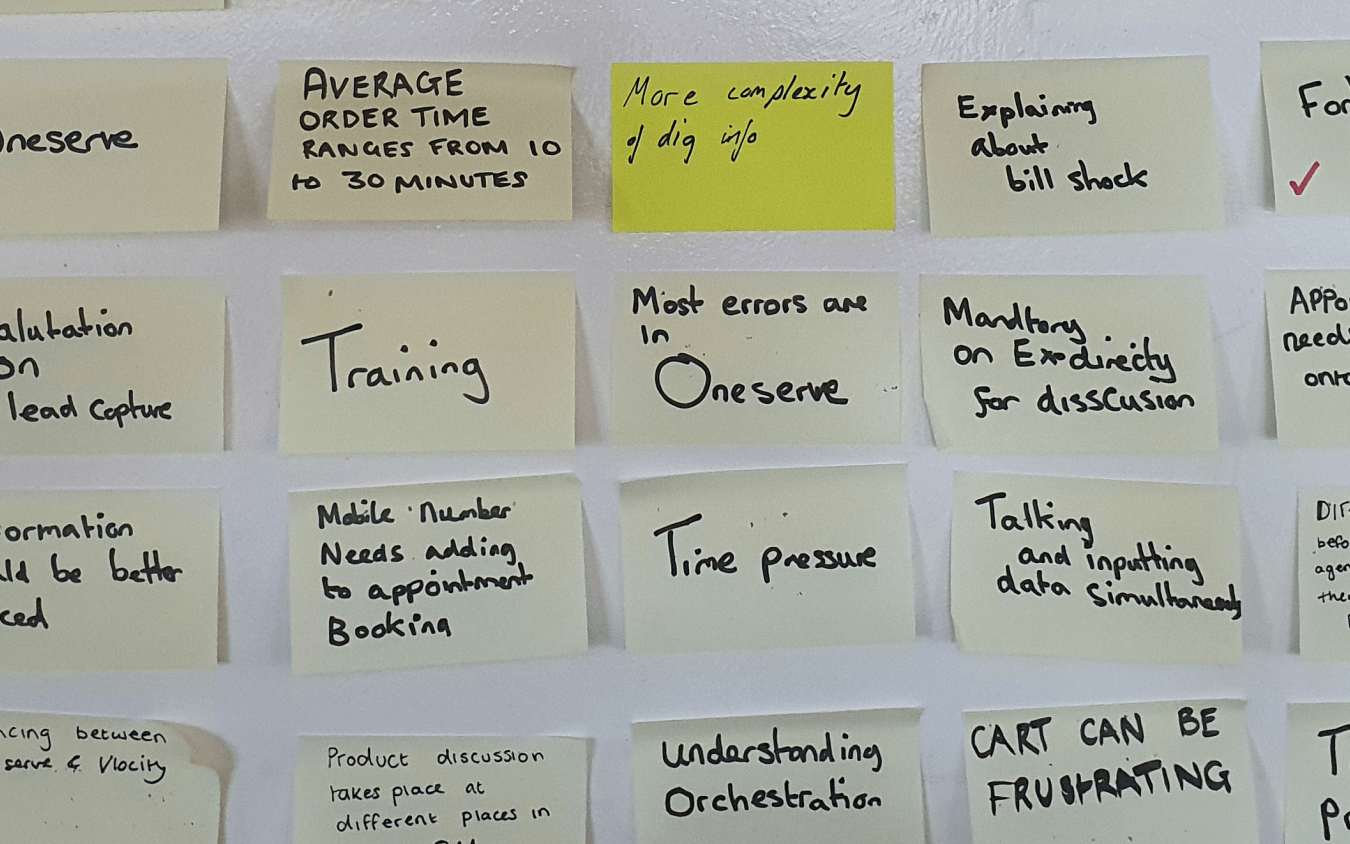 AVERAGE
ORDER TIME
RANGES FROM 10
to 30 MINUTES
More complexity
of dig info
Explaining
about
bill shock
For
on
lead capture
Training
Most errors are
in
Oneserve
Mandtory
on Exdirecty
for disscusion
be better
Mobile Number
Needs adding
to appointment
Booking
Time pressure
Talking
and inputting
data simultaneously
between
serve & Vlocity
Product discussion
takes place at
different places in
Understanding
Orchestration
CART CAN BE
FRUSTRATING